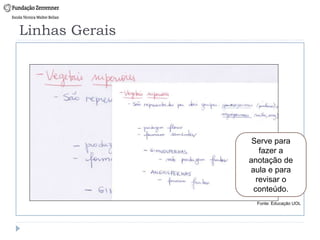 Fundação Zerrenner
Escola Técnica Walter Belian
Linhas Gerais
- Vegetais superiores
- São repre
- produ
- forma
- GI
- Vegetais superiores
- São representado por dois grupos:
- produzem flores
- formam sementes
- GIMNOSPERMAS
- não produzem frutos
- ANGIOSPERMAS
- formam frutos
Serve para
fazer a
anotação de
aula e para
revisar o
conteúdo.
Fonte: Educação UOL